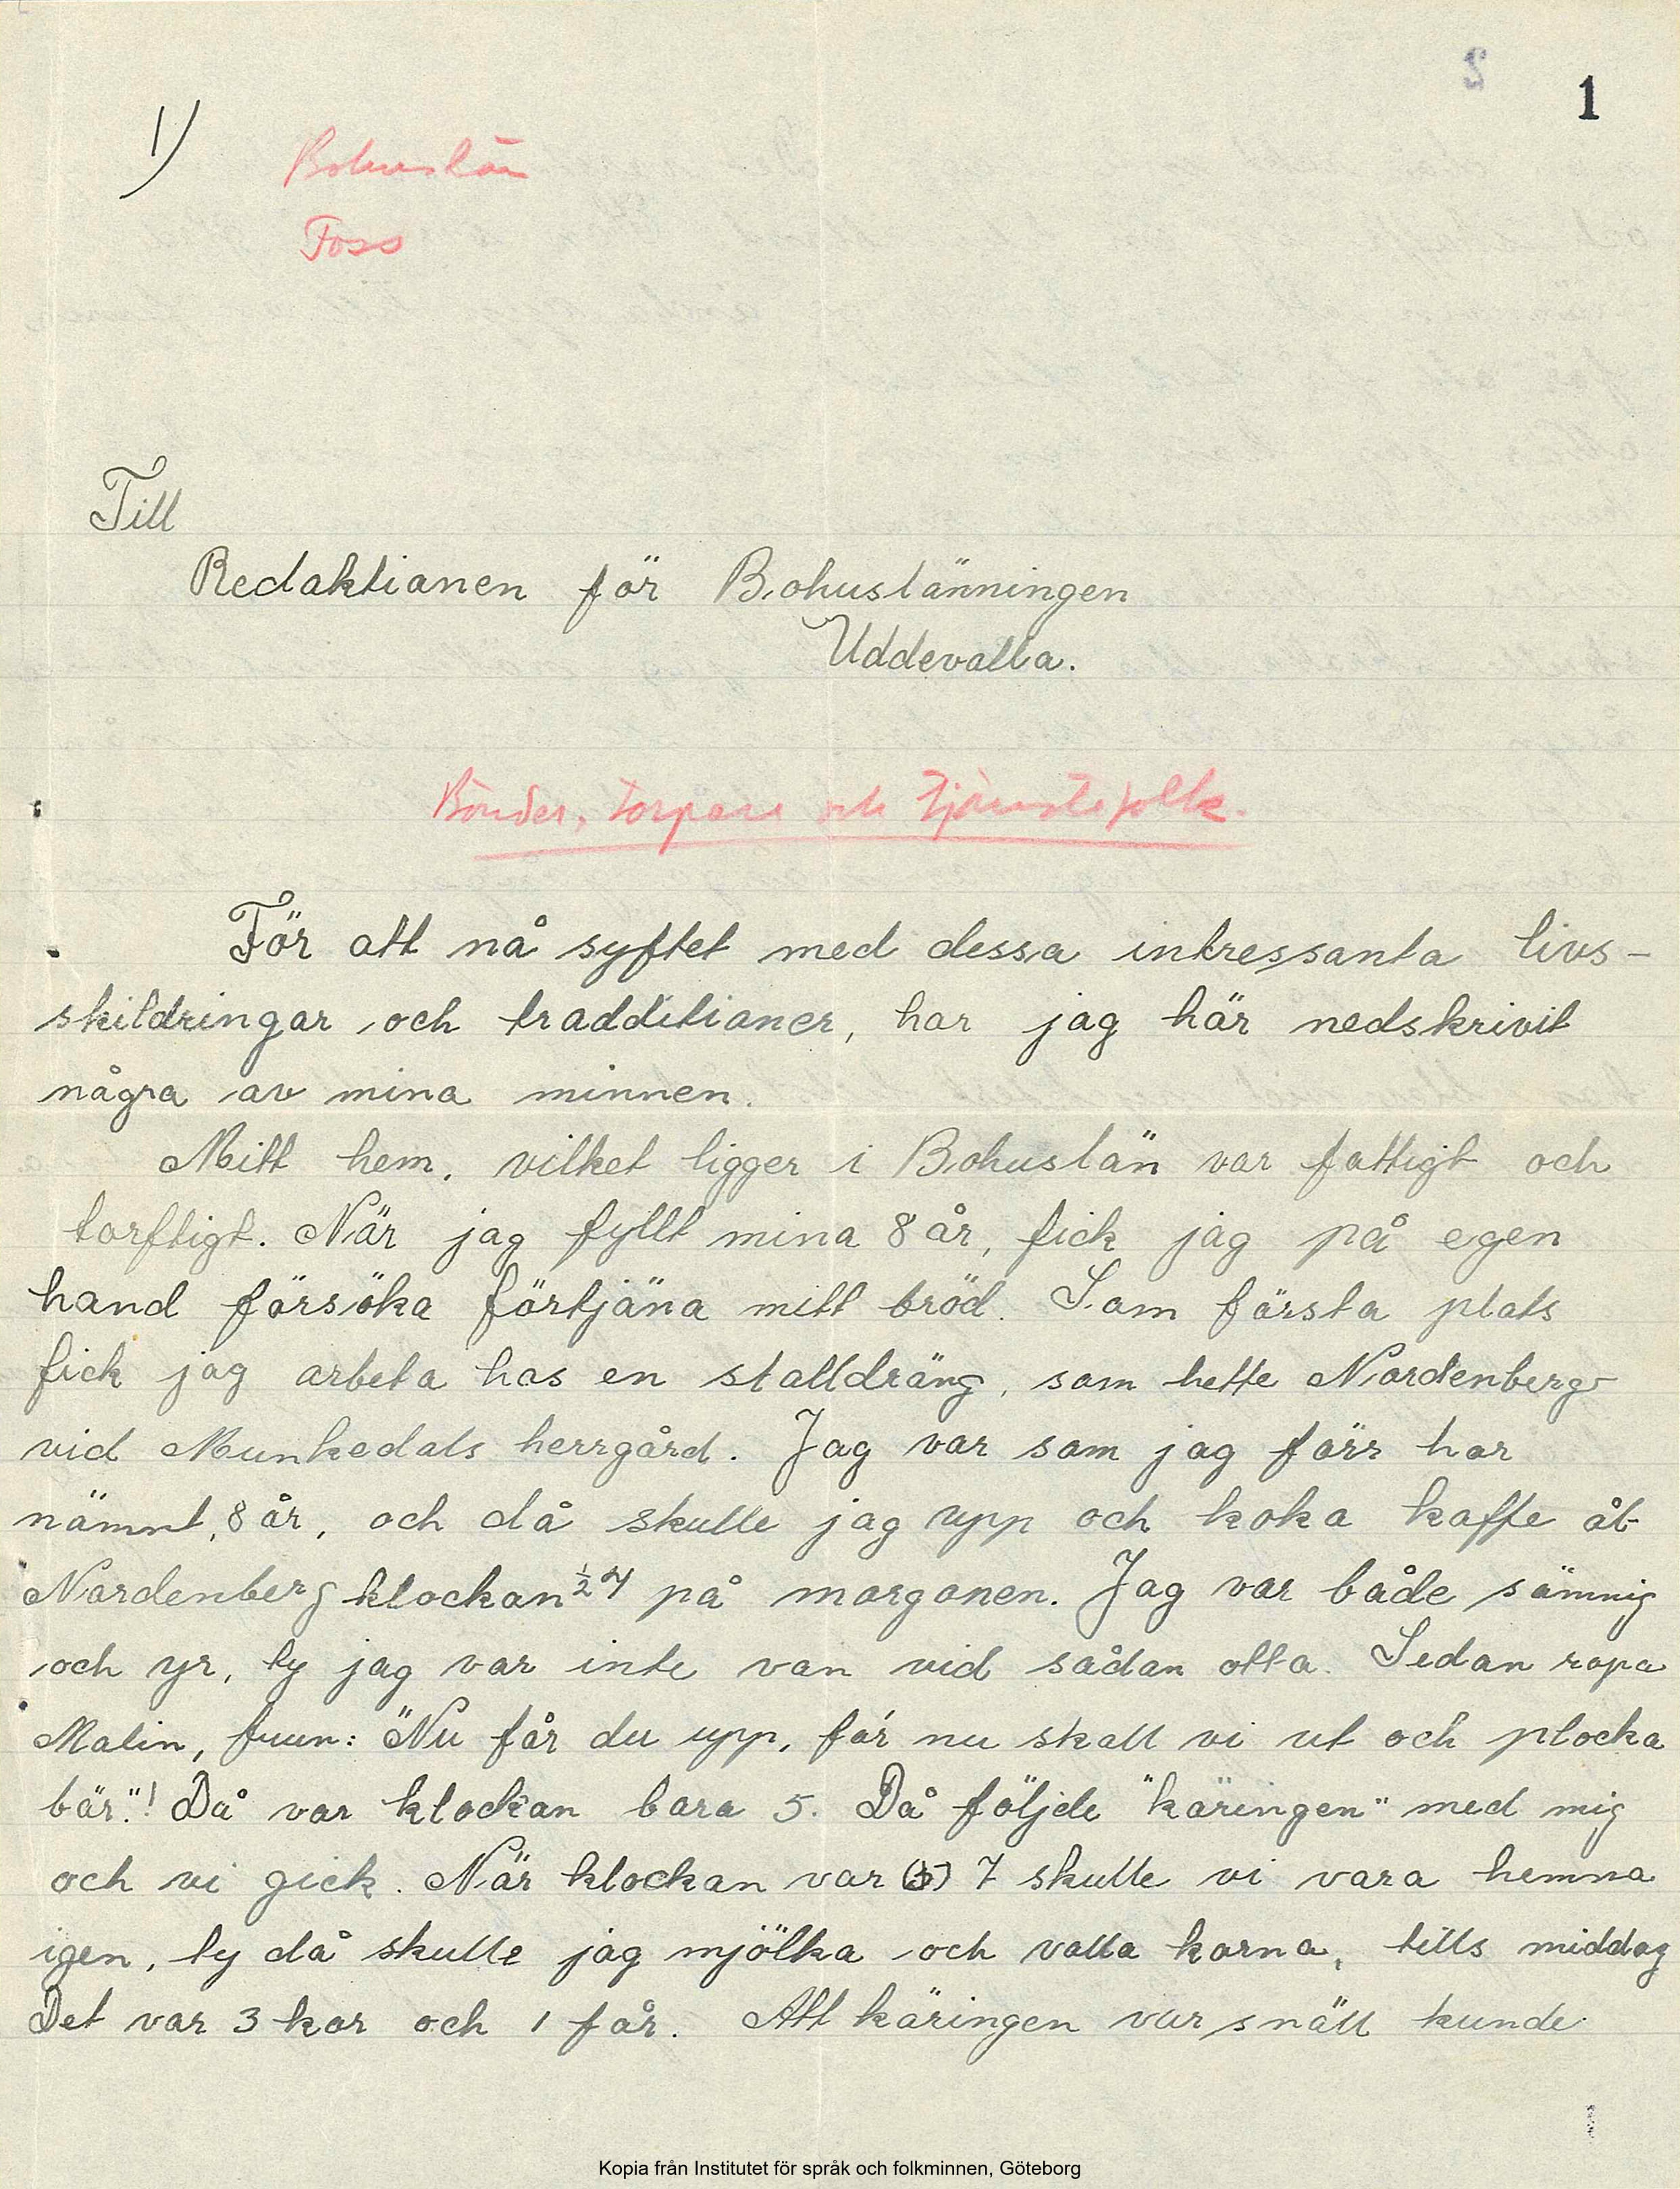 1
1)
Bohuslän
Foss
Till
Redaktionen för Bohuslänningen
Uddevalla.
Bönder, torpare och tjänstefolk.
För att nå syftet med dessa intressanta livs-
skildringar och tradditioner, har jag här nedskrivit
några av mina minnen.
Mitt hem, vilket ligger i Bohuslän var fattigt och
torftigt. När jag fyllt mina 8 år, fick jag på egen
hand försöka förtjäna mitt bröd. Som första plats
fick jag arbeta hos en stalldräng, som hette Nordenberg
vid Munkedals herrgård. Jag var som jag förr har
nämnt, 8 år, och då skulle jag upp och koka kaffe åt
Nordenberg klockan ½ 4 på morgonen. Jag var både sömnig
och yr, ty jag var inte van vid sådan otta. Sedan ropa
Malin, frun: "Nu får du upp, för nu skall vi ut och plocka
bär."! Då var klockan bara 5. Då följde "käringen" med mig
och vi gick. När klockan var (5) 7 skulle vi vara hemma
igen, ty då skulle jag mjölka och valla korna, tills middag
Det var 3 kor och 1 får. Att käringen var snäll kunde
Kopia från Institutet för språk och folkminnen, Göteborg